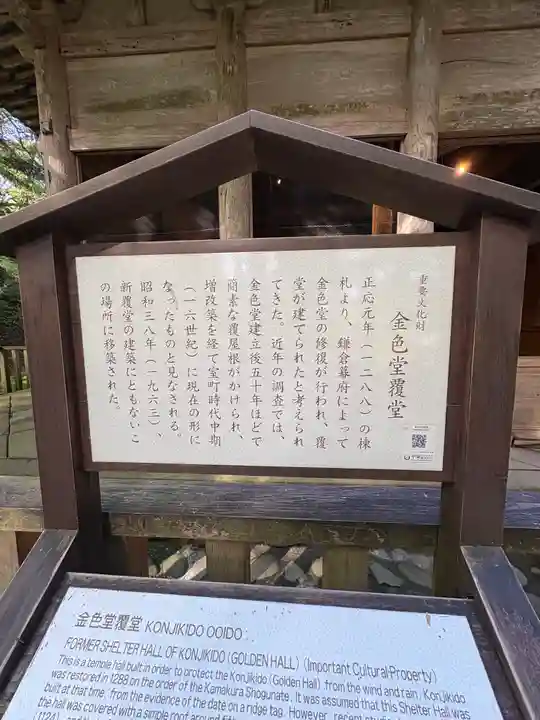 重要文化財
金色堂覆堂
正応元年（一二八八）の棟
札より、鎌倉幕府によって
金色堂の修復が行われ、覆
堂が建てられたと考えられ
てきた。近年の調査では、
金色堂建立後五十年ほどで
簡素な覆屋根がかけられ、
増改築を経て室町時代中期
（一六世紀）に現在の形に
なったものと見なされる。
昭和三八年（一九六三）、
新覆堂の建築にともないこ
の場所に移築された。
金色堂覆堂 KONJIKIDO OOIDO
FORMER SHELTER HALL OF KONJIKIDO (GOLDEN HALL) (Important Cultural Property)
This is a temple hall built in order to protect the Konjikido (Golden Hall) from the wind and rain. Konjikido
was restored in 1288 on the order of the Kamakura Shogunate. It was assumed that this Shelter Hall was
built at that time, from the evidence of the date on a ridge tag. However, recent
the hall was covered with a simple roof around